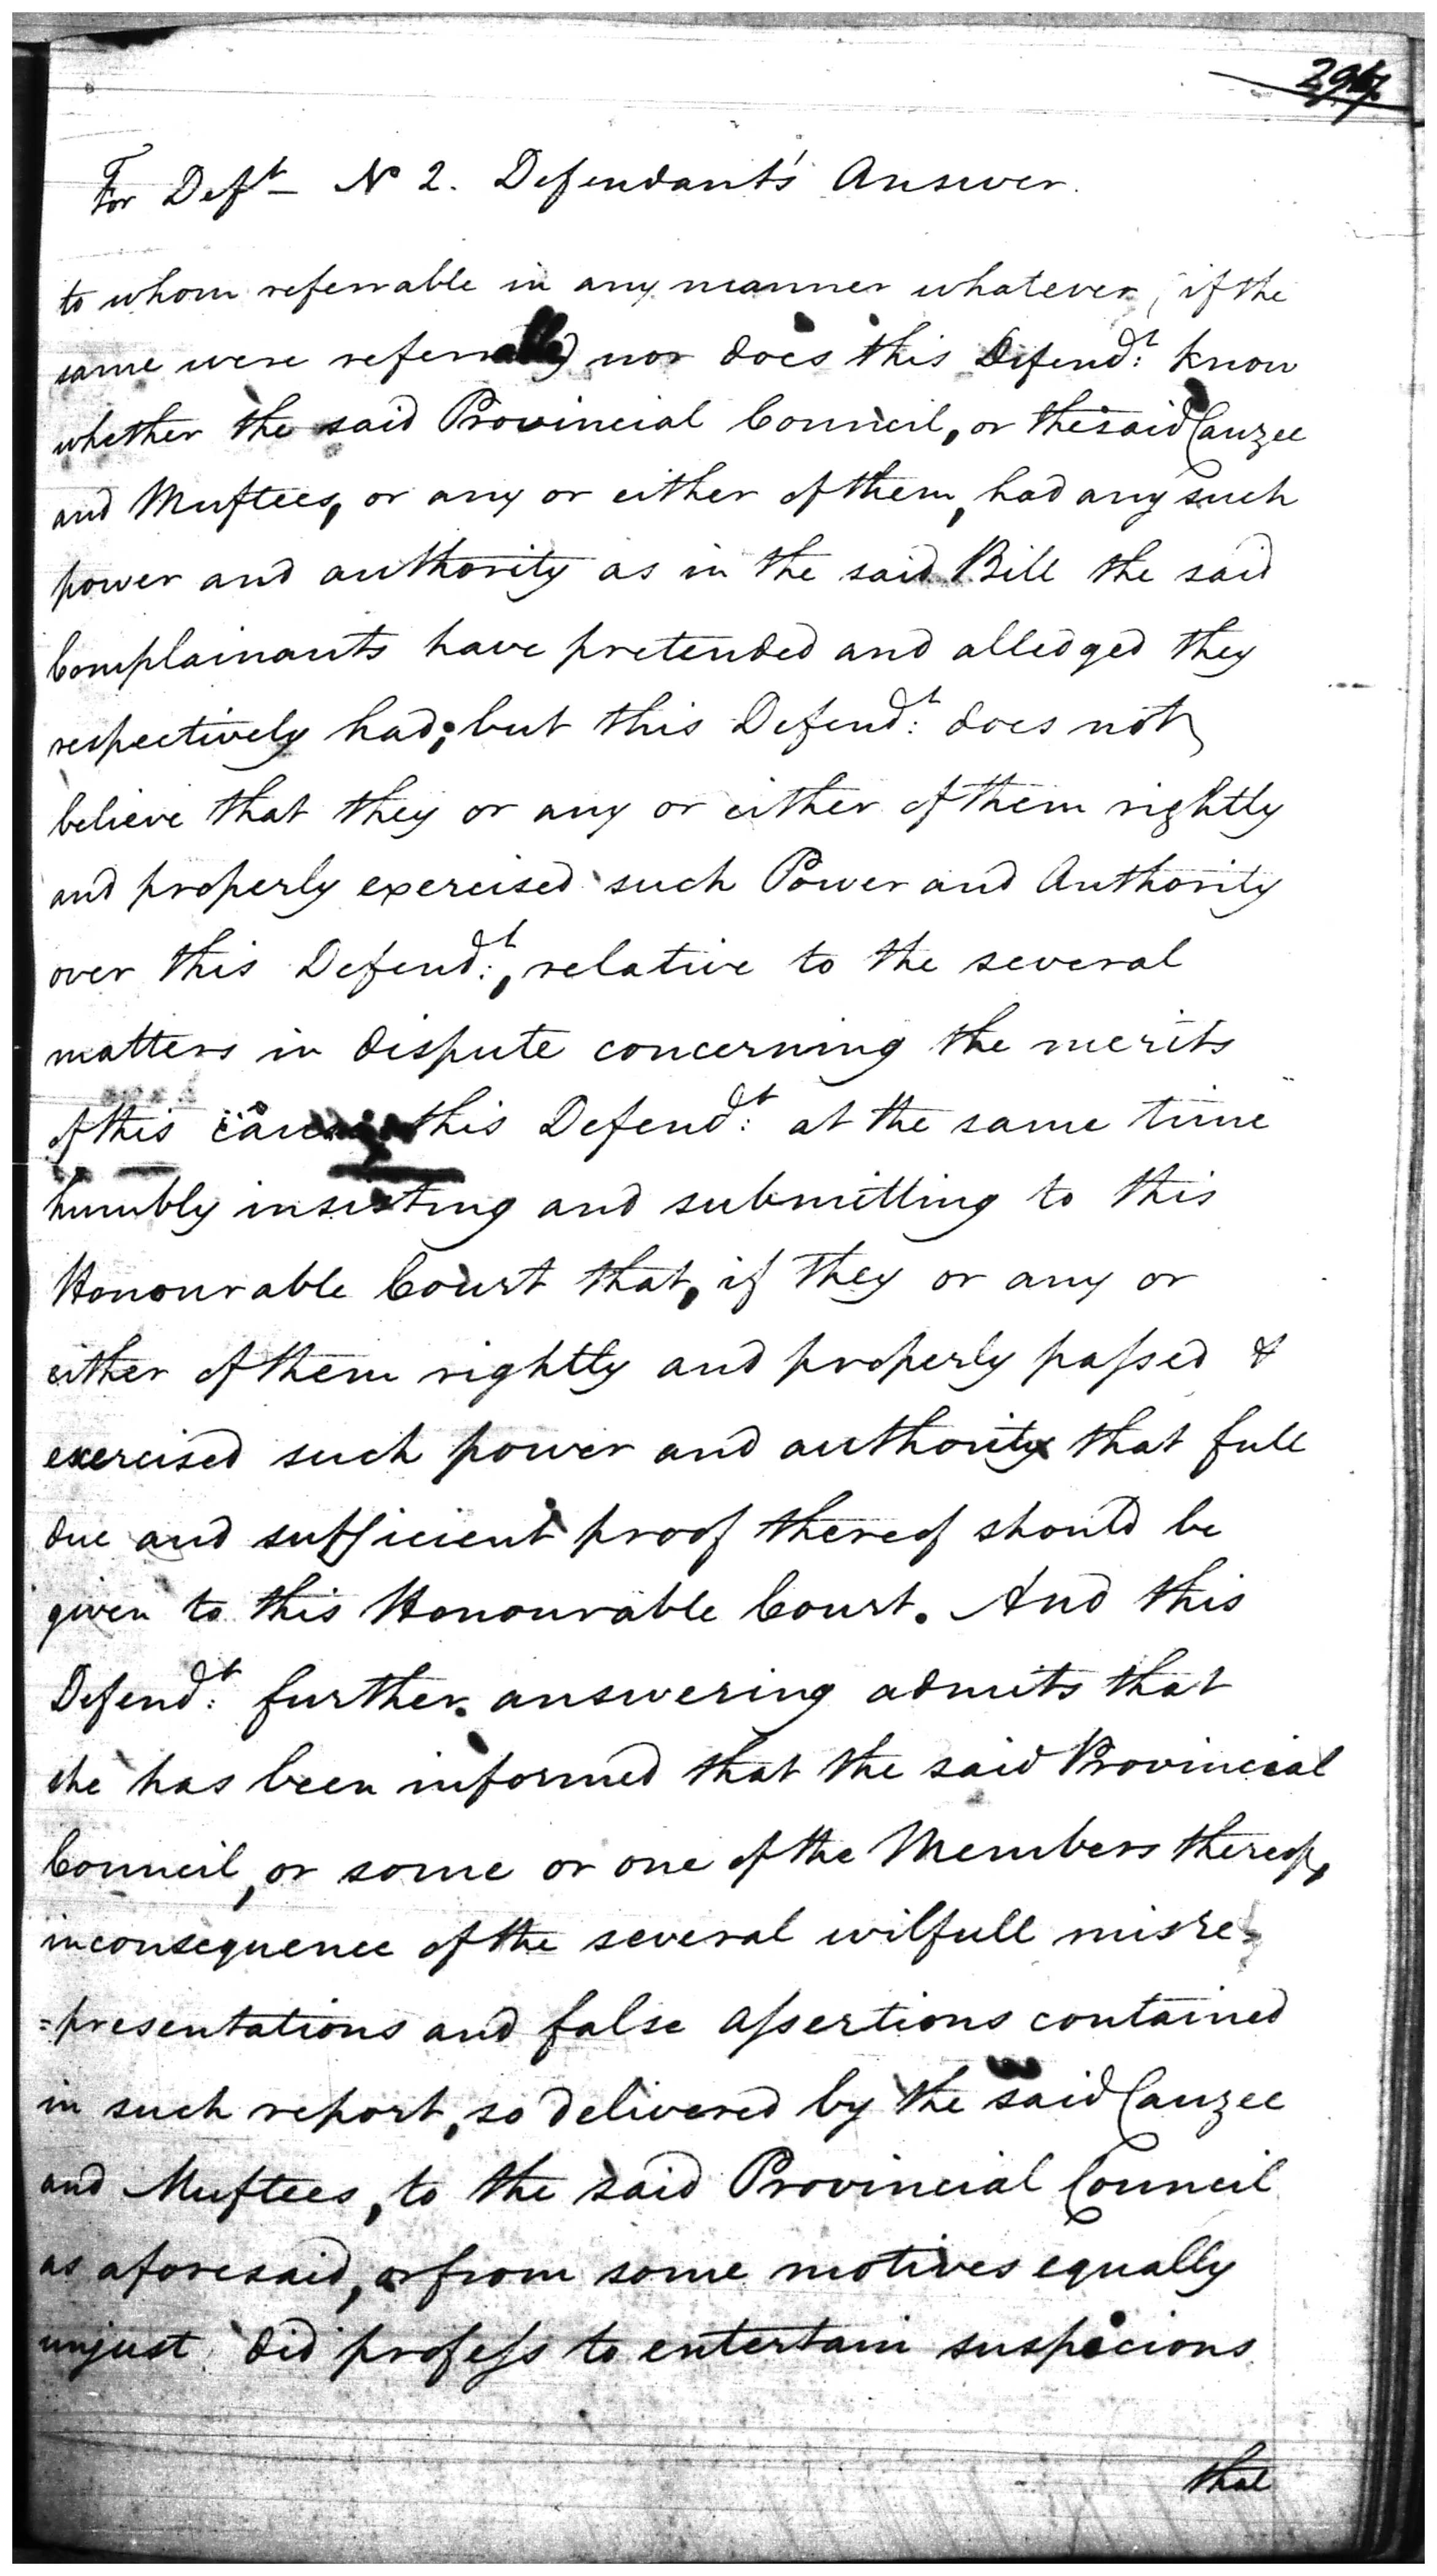 For Deft N 2. Defendant's Answer.
to whom referrable in any manner whatever, if the
same were referrable) nor does this Defend:t know
whether the said Provincial Council, or the said Cauzee
and Muftees, or any or either of them, had any such
power and authority as in the said Bill the said
Complainants have pretended and alledged they
respectively had; but this Defend:t does not
believe that they or any or either of them rightly
and properly exercised such Power and Authority
over this Defend:t, relative to the several
matters in dispute concerning the merits
of this cause this Defend:t at the same time
humbly insisting and submitting to this
Honourable Court that, if they or any or
either of them rightly and properly passed &
exercised such power and authority that full
due and sufficient proof thereof should be
given to this Honourable Court. And this
Defend:t further answering admits that
she has been informed that the said Provincial
Council, or some or one of the Members thereof,
inconsequence of the several wilfull misre=
=presentations and false assertions contained
in such report, so delivered by the said Cauzee
and Muftees, to the said Provincial Council
as aforesaid, or from some motives equally
unjust did profess to entertain suspicions
that